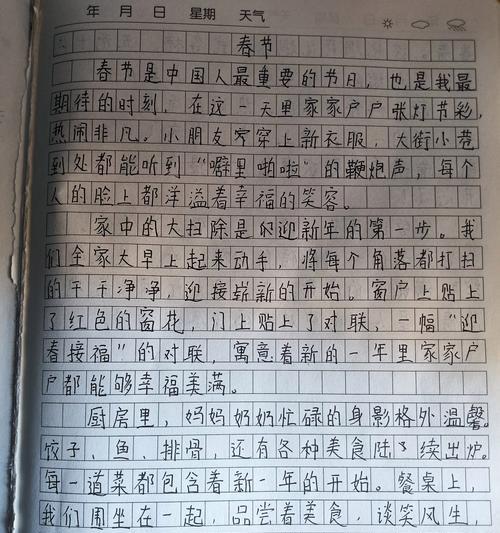 年 月 日 星期 天气
春节
春节是中国人最重要的节日，也是我最
期待的时刻，在这一天里家家户户张灯节彩，
热闹非凡。小朋友穿上新衣服，大街小巷
到处都能听到“噼里啪啦”的鞭炮声，每个
人的脸上都洋溢着幸福的笑容。
家中的大扫除是迎新年的第一步。我
们全家大早上起来动手，将每个角落都打扫
的干干净净，迎接崭新的开始。窗户上贴上
了红色的窗花，门上贴上了对联，一幅“迎
春接福”的对联，寓意着新的一年里家家户
户都能够幸福美满。
厨房里，妈妈奶奶忙碌的身影格外温馨。
饺子、鱼、排骨，还有各种美食陆了续出炉。
每一道菜都包含着新一年的开始。餐桌上，
我们围坐在一起，品尝着美食，谈笑风生，